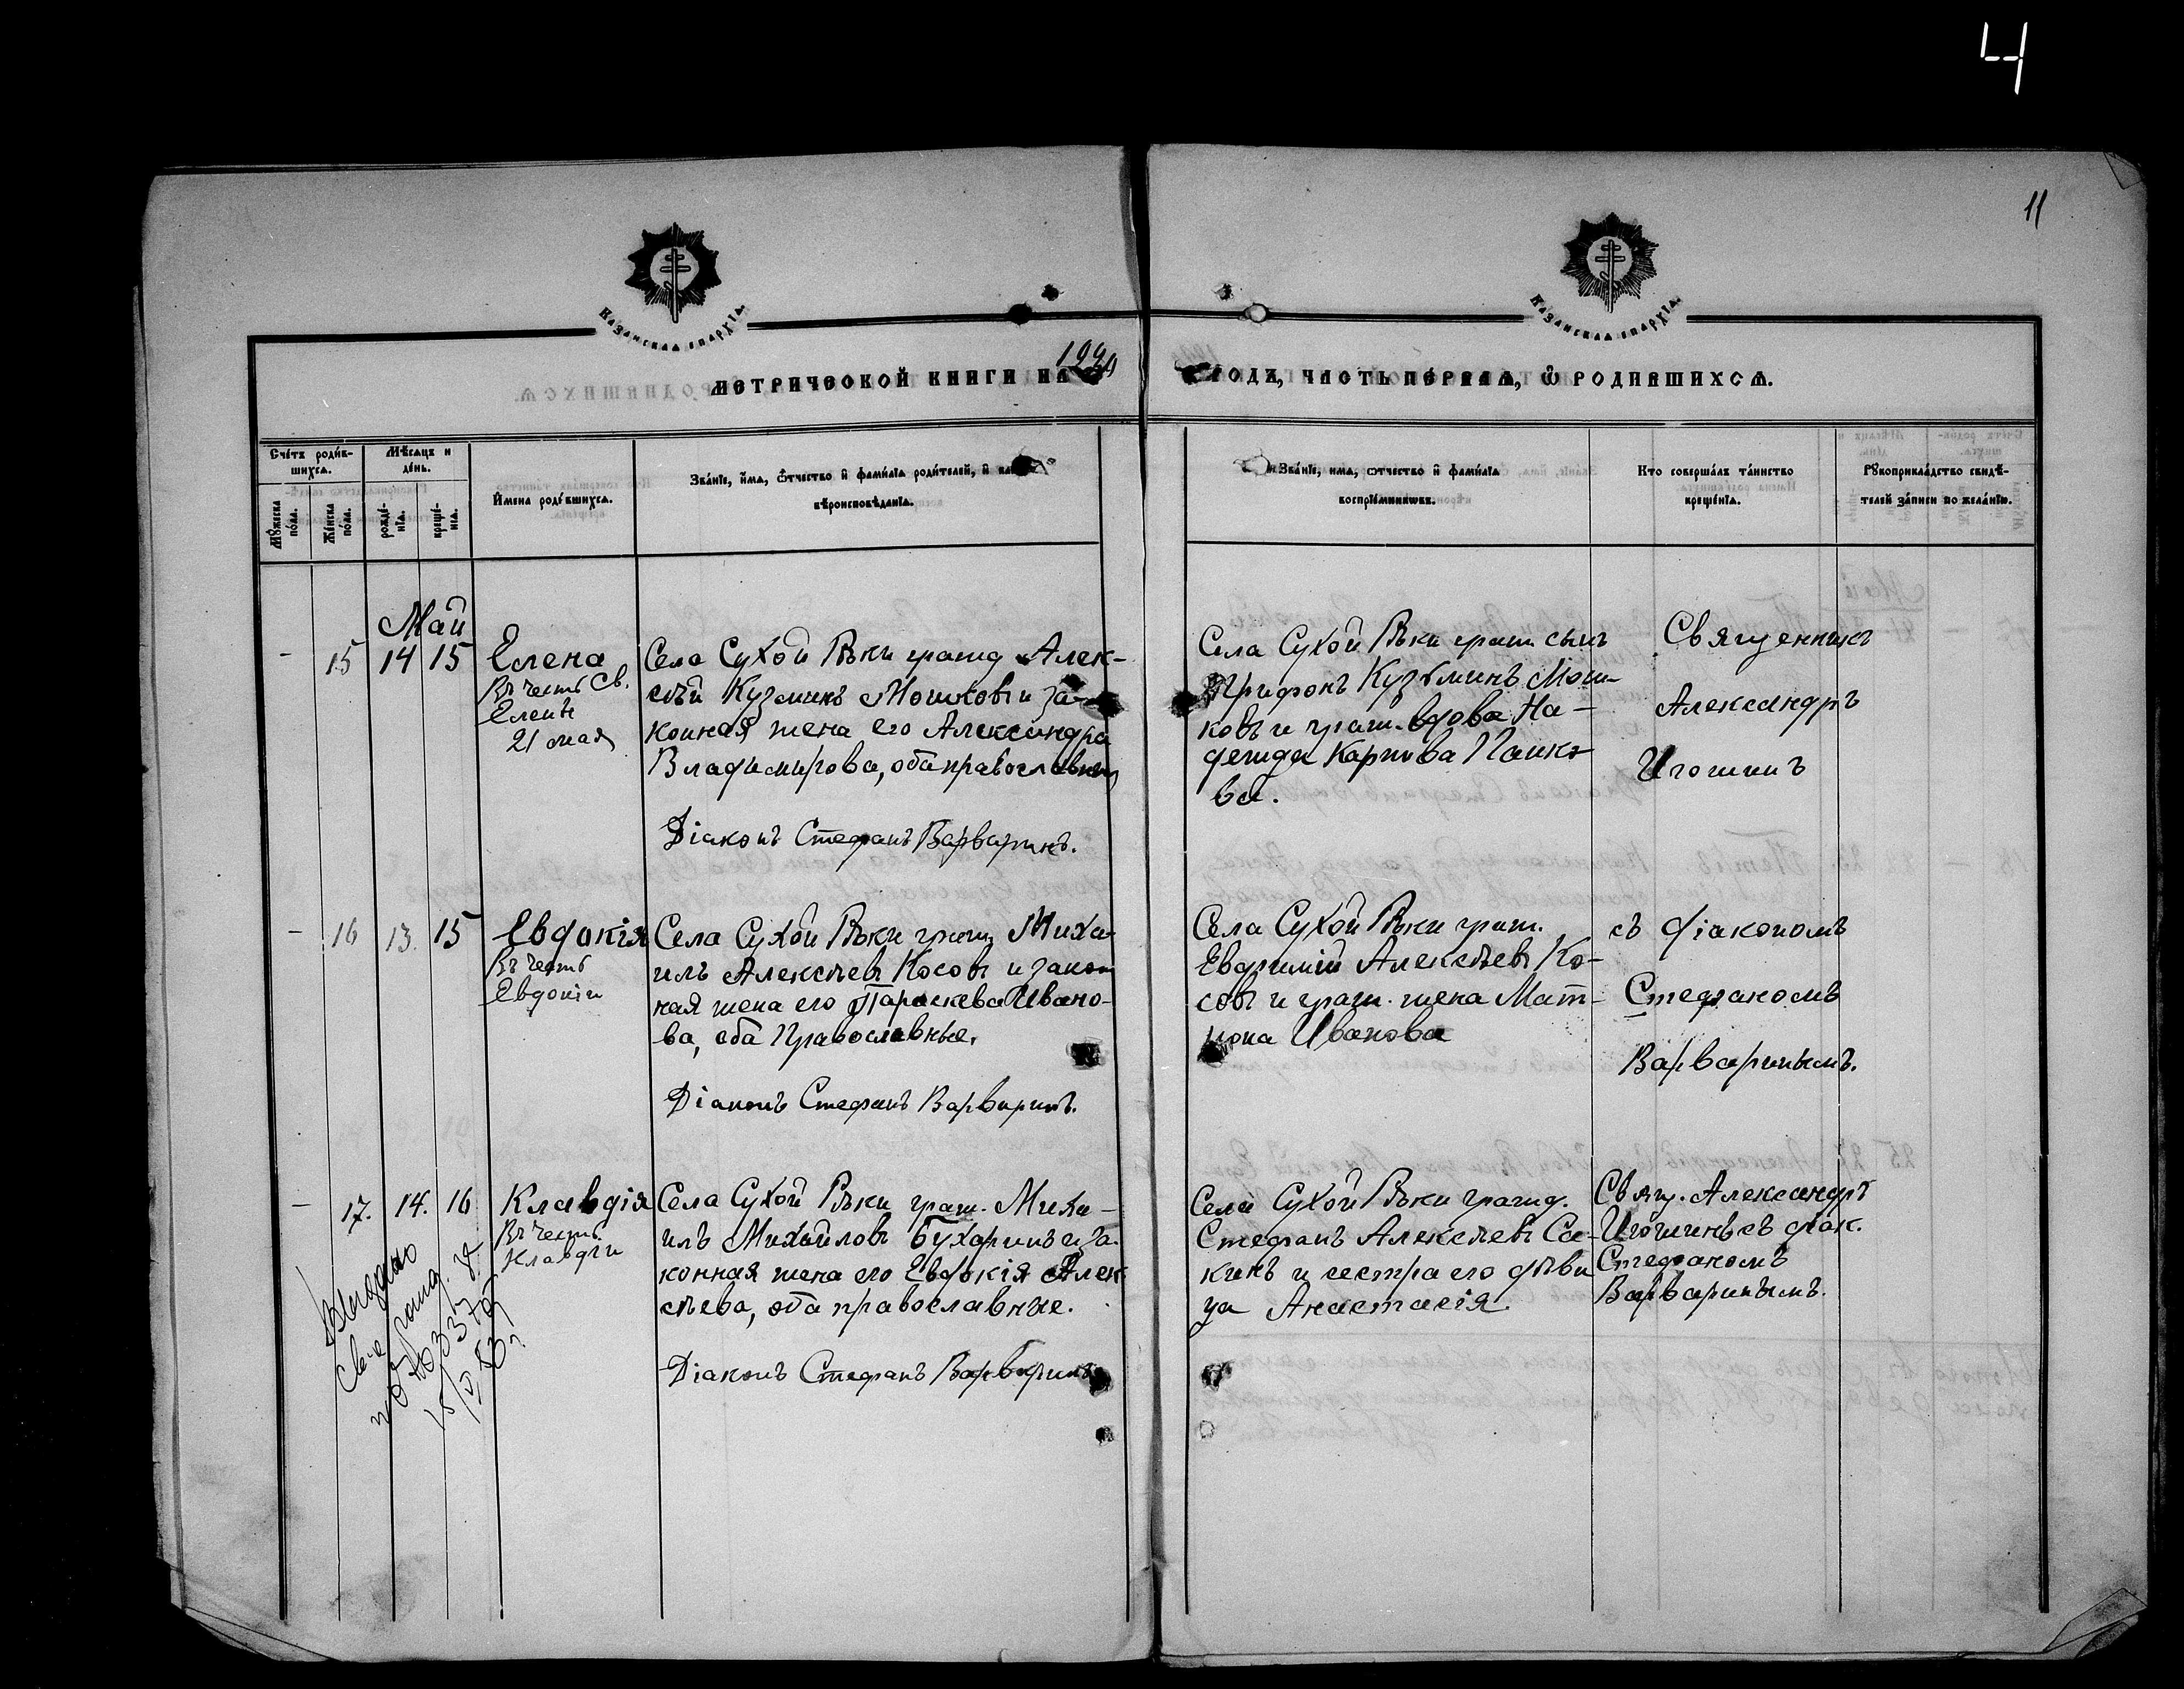 4
11
КАЗАНСКАѦ ЕПАРХІА.
КАЗАНСКАѦ ЕПАРХІА.
МЕТРИЧЕСКОЙ КНИГИ НА
ГОДЪ, ЧАСТЬ ПЕРВАѦ, Ѡ РОДИВШИХСѦ.
Сче́тъ роди́в-
шихсѧ.
Мѣ́сѧцъ и
де́нь.
Мꙋ́жеска
по́ла.
Же́нска
по́ла.
рожде́-
нїѧ.
креще́-
нїѧ.
И҆мена роди́вшихсѧ.
Зва́нїе, и҆́мѧ, ѻ҆́тчество и҆ фами́лїѧ роди́телей, и҆
вѣроисповѣ́данїѧ.
Зва́нїе, имѧ, ѻтчество и҆ фами́лїѧ
воспрїе́мниковъ.
Кто соверша́лъ та́инство
креще́нїѧ.
Рꙋкоприкла́дство свидѣ́-
телей за́писи по жела́нїю.
Май
- 15 14 15 Елена
Въ честь Св.
Елены
21 мая
Села Сухой Рѣки гражд Алек-
сѣй Кузминъ Мошковъ и за-
конная жена его Александра
Владимирова, оба православныя
Діаконъ Стефанъ Варваринъ.
Села Сухой Рѣки граж. сынъ
Трифонъ Кузьминъ Мош-
ковъ и граж. вдова На-
дежда Карпова Панко
ва.
Священникъ
Александръ
Игошинъ
- 16 13. 15 Евдокія
Въ честь
Евдокіи
Села Сухой Рѣки граж. Миха-
илъ Алексѣевъ Косовъ и закон
ная жена его Параскева Ивано-
ва, оба Православные.
Діаконъ Стефанъ Варваринъ.
Села Сухой Рѣки граж.
Евфимій Алексѣевъ Ко-
совъ и граж. жена Мат-
рона Иванова
съ діакономъ
Стефаномъ
Варваринымъ.
- 17. 14. 16 Клавдія
Въ честь
Клавдіи
Села Сухой Рѣки граж. Миха-
илъ Михайловъ Бухаринъ и за-
конная жена его Евдокія Алек
сѣева, оба православные.
Діаконъ Стефанъ Варваринъ
Села Сухой Рѣки гражд.
Стефанъ Алексѣевъ Са-
кинъ и сестра его дѣви
ца Анастасія.
Свящ. Александръ
Игошинъ съ діак.
Стефаномъ
Варваринымъ.
Выдано